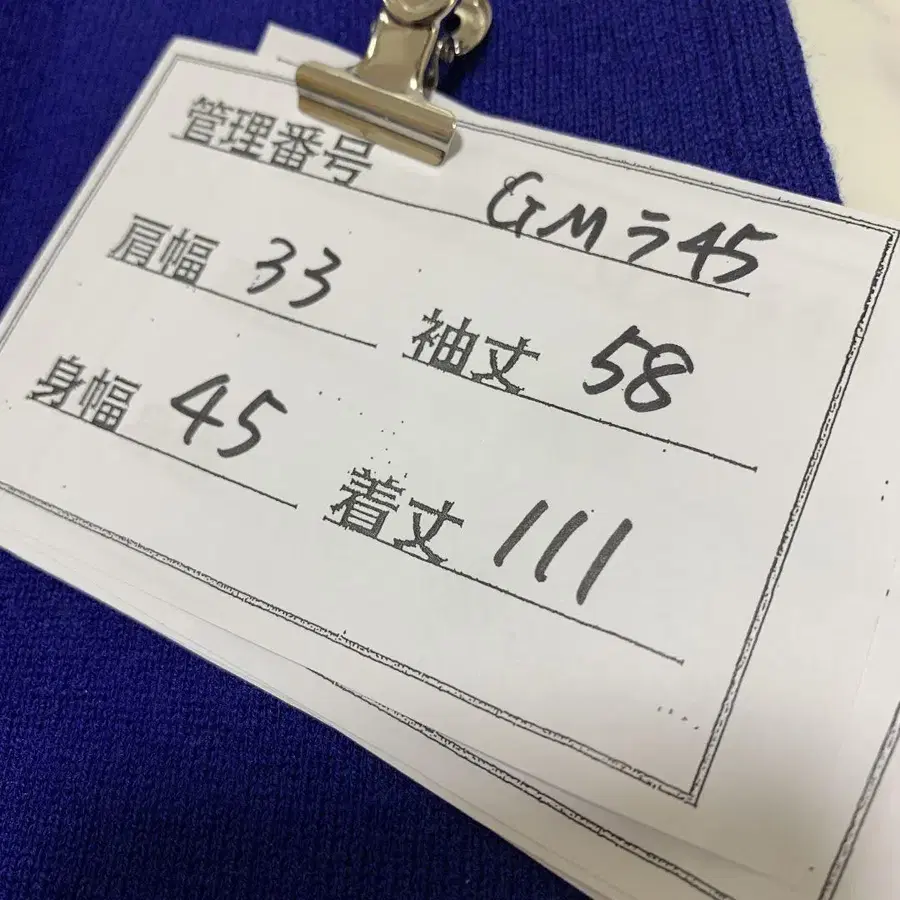 管理番号 GMラ45
肩幅 33 袖丈 58
身幅 45 着丈 111